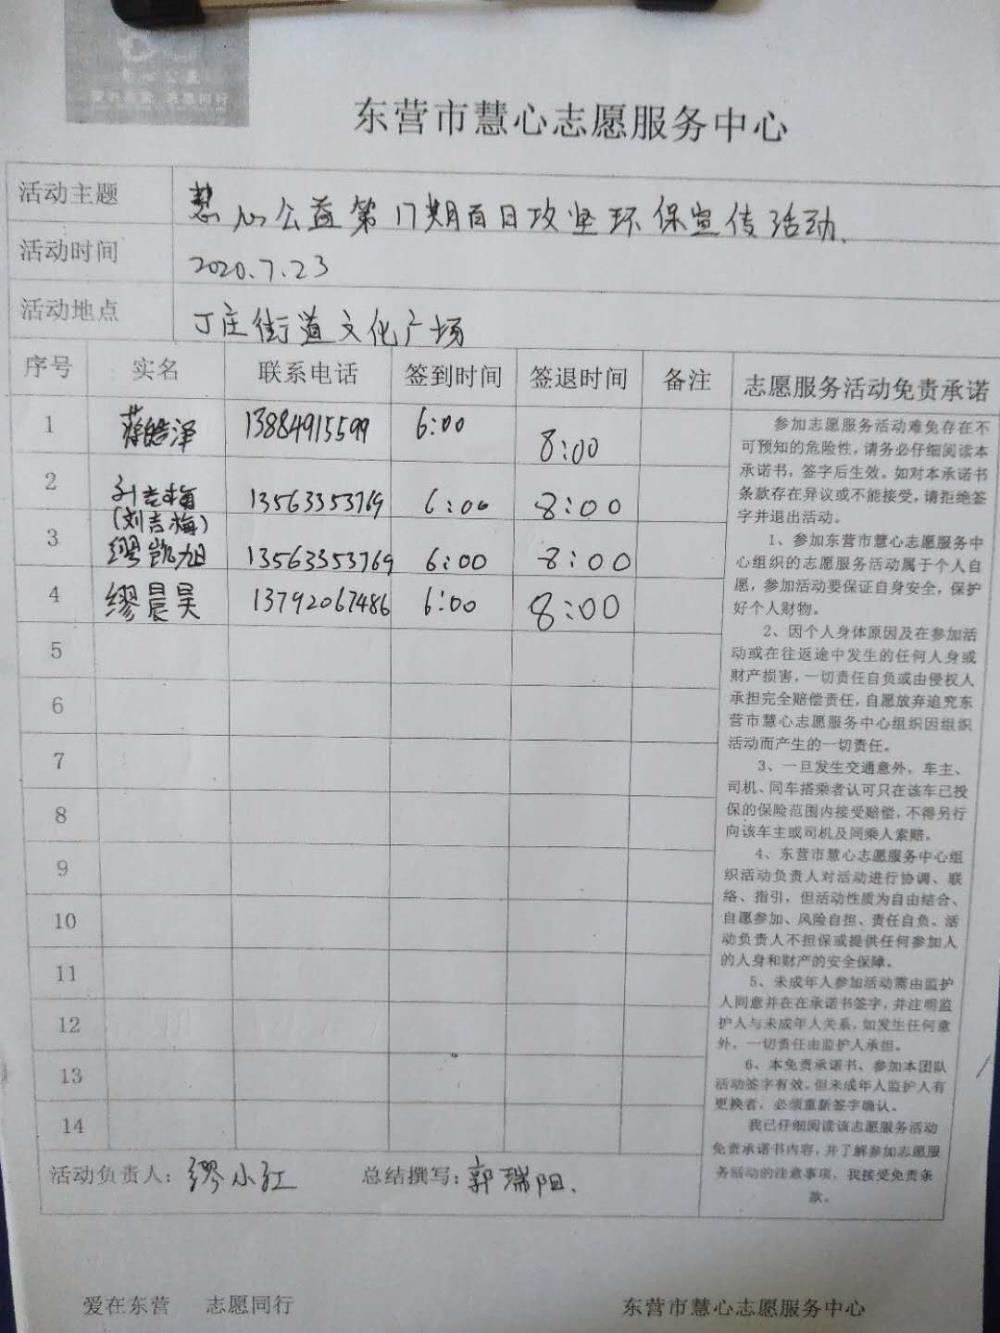 慧心公益
爱在东营 志愿同行
东营市慧心志愿服务中心
活动主题 慧心公益第17期百日攻坚环保宣传活动.
活动时间 2020.7.23
活动地点 丁庄街道文化广场
序号 实名 联系电话 签到时间 签退时间 备注 志愿服务活动免责承诺
1 蒋皓泽 13884915599 6:00 8:00
2 刘吉梅 13563353769 6:00 8:00
(刘吉梅)
3 缪凯旭 13563353769 6:00 8:00
4 缪晨昊 13792067486 6:00 8:00
5
6
7
8
9
10
11
12
13
14
参加志愿服务活动难免存在不
可预知的危险性,请务必仔细阅读本
承诺书,签字后生效。如对本承诺书
条款存在异议或不能接受,请拒绝签
字并退出活动。
1、参加东营市慧心志愿服务中
心组织的志愿服务活动属于个人自
愿,参加活动要保证自身安全,保护
好个人财物。
2、因个人身体原因及在参加活
动或在往返途中发生的任何人身或
财产损害,一切责任自负或由侵权人
承担完全赔偿责任,自愿放弃追究东
营市慧心志愿服务中心组织因组织
活动而产生的一切责任。
3、一旦发生交通意外,车主、
司机、同车搭乘者认可只在该车已投
保的保险范围内接受赔偿,不得另行
向该车主或司机及同乘人索赔。
4、东营市慧心志愿服务中心组
织活动负责人对活动进行协调、联
络、指引,但活动性质为自由结合、
自愿参加、风险自担、责任自负。活
动负责人不担保或提供任何参加人
的人身和财产的安全保障。
5、未成年人参加活动需由监护
人同意并在在承诺书签字,并注明监
护人与未成年人关系,如发生任何意
外,一切责任由监护人承担。
6、本免责承诺书,参加本团队
活动签字有效。但未成年人监护人有
更换者,必须重新签字确认。
我已仔细阅读该志愿服务活动
免责承诺书内容,并了解参加志愿服
务活动的注意事项,我接受免责条
款。
活动负责人: 缪小红 总结撰写: 郭瑞阳.
爱在东营 志愿同行 东营市慧心志愿服务中心